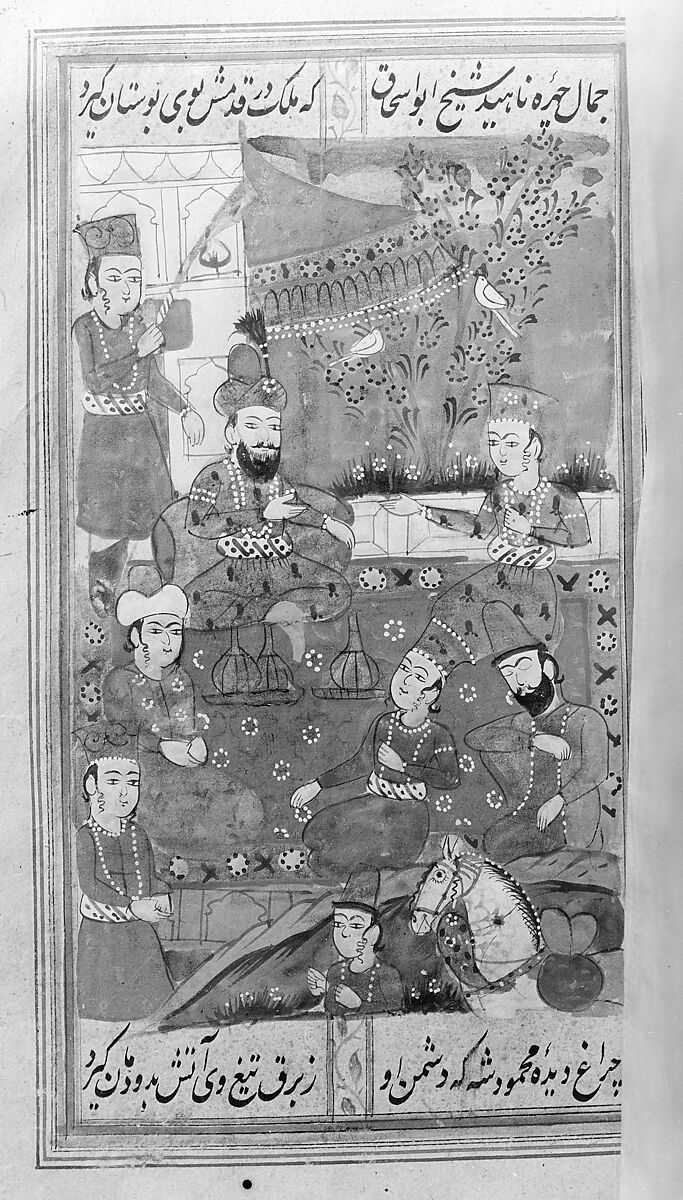 جمال چهره ناهید شیخ ابواسحاق که ملک در قدمش بوی بوستان گیرد
چراغ دیده محمود شه که دشمن او زبرق تیغ وی آتش بدودمان گیرد